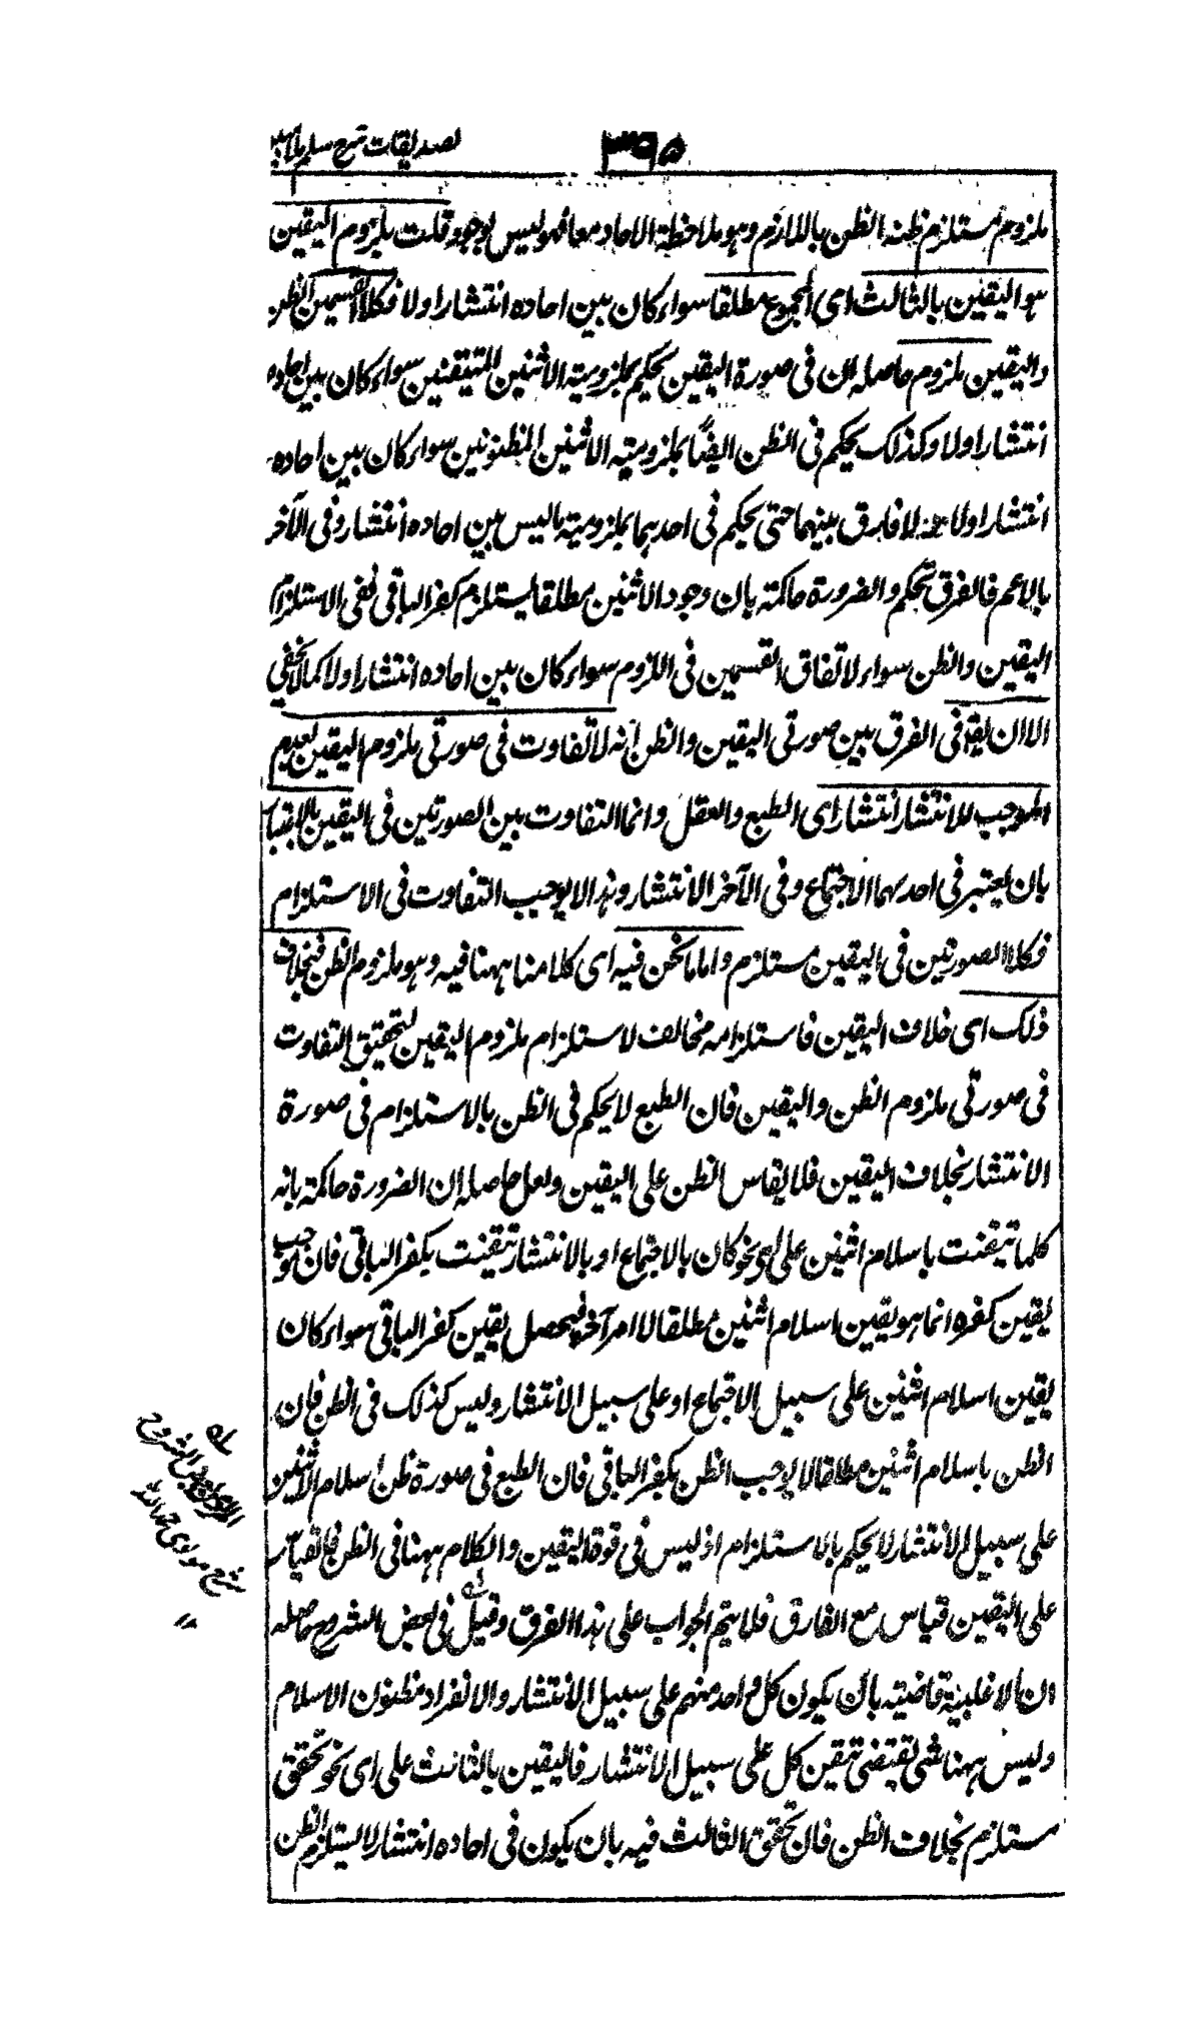 ٣٩٥
تصديقات شرح سلم
ملزوم مستلزم ظنه الظن باللازم وهو ملاحظة الآحاد معا فهو ليس بوجود قلت ملزوم اليقين
هو اليقين بالثالث اى المجموع مطلقا سواء كان بين احاده انتشار اولا فكلا القسمين الظن
واليقين ملزوم حاصله ان فى صورة اليقين يحكم بملزومية الاثنين المتيقنين سواء كان بين احاده
انتشار اولا وكذلك يحكم فى الظن ايضًا بملزومية الاثنين المظنونين سواء كان بين احاده
انتشار اولا لا فارق بينهما حتى يحكم فى احدهما بملزومية ما ليس بين احاده انتشار وفى الآخر
بالاعم فالفرق تحكم والضرورة حاكمة بان وجود الاثنين مطلقا يستلزم كفر الباقى ففى الاستلزام
اليقين والظن سواء لاتفاق القسمين فى اللزوم سواء كان بين احاده انتشار اولا كما لا يخفى
الا ان يقر فى الفرق بين صورتى اليقين والظن انه لا تفاوت فى صورتى ملزوم اليقين لعدم
الموجب للانتشار انتشار اى الطبع والعقل وانما التفاوت بين الصورتين فى اليقين بالاعتبار
بان يعتبر فى احدهما الاجتماع وفى الآخر الانتشار وهذا لا يوجب التفاوت فى الاستلزام
فكلا الصورتين فى اليقين مستلزم واما ما نحن فيه اى كلامنا ههنا فيه وهو ملزوم الظن فبخلاف
ذلك اى خلاف اليقين فاستلزامه مخالف لاستلزام ملزوم اليقين لتحقق التفاوت
فى صورتى ملزوم الظن واليقين فان الطبع لا يحكم فى الظن بالاستلزام فى صورة
الانتشار بخلاف اليقين فلا يقاس الظن على اليقين ولعل حاصله ان الضرورة حاكمة بانه
كلما تيقنت باسلام اثنين على اى نحو كان بالاجتماع او بالانتشار تيقنت بكفر الباقى فان موجب
يقين كفره انما هو يقين اسلام اثنين مطلقا لا امر آخر فيحصل يقين كفر الباقى سواء كان
يقين اسلام اثنين على سبيل الاجتماع او على سبيل الانتشار وليس كذلك فى الظن فان
الظن باسلام اثنين مطلقا لا يوجب الظن بكفر الباقى فان الطبع فى صورة ظن اسلام الاثنين
على سبيل الانتشار لا يحكم بالاستلزام اذ ليس فى قوة اليقين والكلام ههنا فى الظن فالقياس
على اليقين قياس مع الفارق فلا يتم الجواب على هذا الفرق وقيل فى بعض الشروح حاصله
ان الاغلبية قاضية بان يكون كل واحد منهم على سبيل الانتشار والانفراد مظنون الاسلام
وليس ههنا شى يقتضى تيقن كل على سبيل الانتشار فاليقين بالثالث على اى نحو تحقق
مستلزم بخلاف الظن فان تحقق الثالث فيه بان يكون فى احاده انتشار لا يستلزم الظن
المراد من بعض الشروح
شرح مولوى حمد الله
١٢